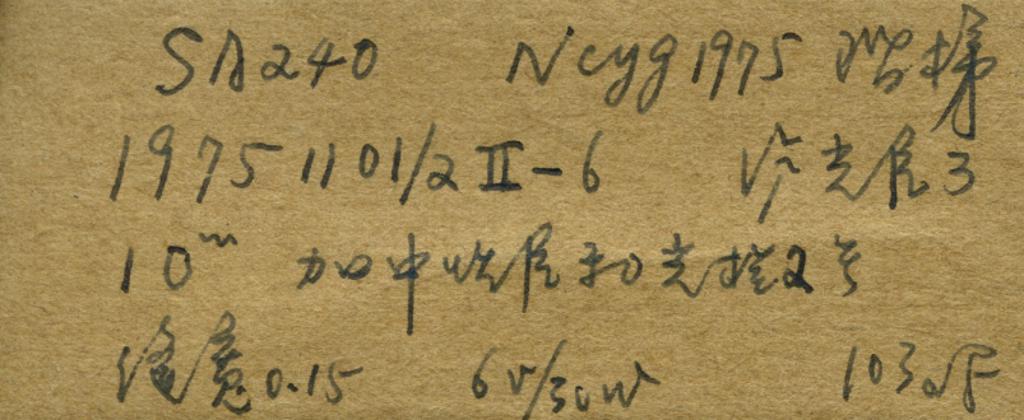 SA240 Ncyg1975 阶梯
1975 11 01/2 II-6 光屏3
10ᵐ 加中性屏和光楼2号
缝宽0.15 6V/30W 103aF